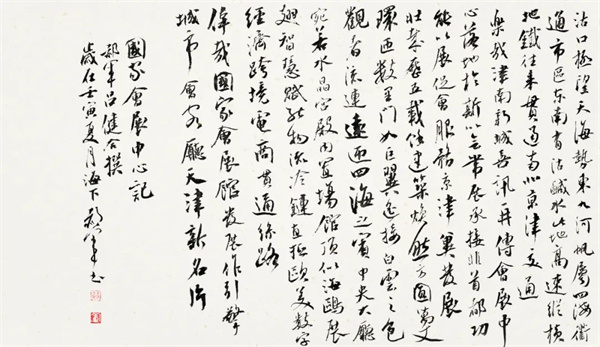 沽口极望天海势东九河帆属四海衢
通市邑东南有沽咸水此地高速纵横
地铁往来贯通南北京津交通
乐哉津南新城喜讯再传会展中
心落地于新八里带展承接非首都功
能以展促会服酷京津冀发展
壮基叁五载伟建筑焕然方圆万丈
环匝数里门如巨翼遥接白云之色
观者流连远匝四海之宾中央大厅
宛若水晶宫殿内置场馆顶似海鸥展
翅智慧赋能物流冷链直抵欧美数字
经济跨境电商贯通丝路
伟哉国家会展馆发展作引擎
城市会客厅天津新名片
国家会展中心记
郝军吕健合撰
岁在壬寅夏月海下郝军书